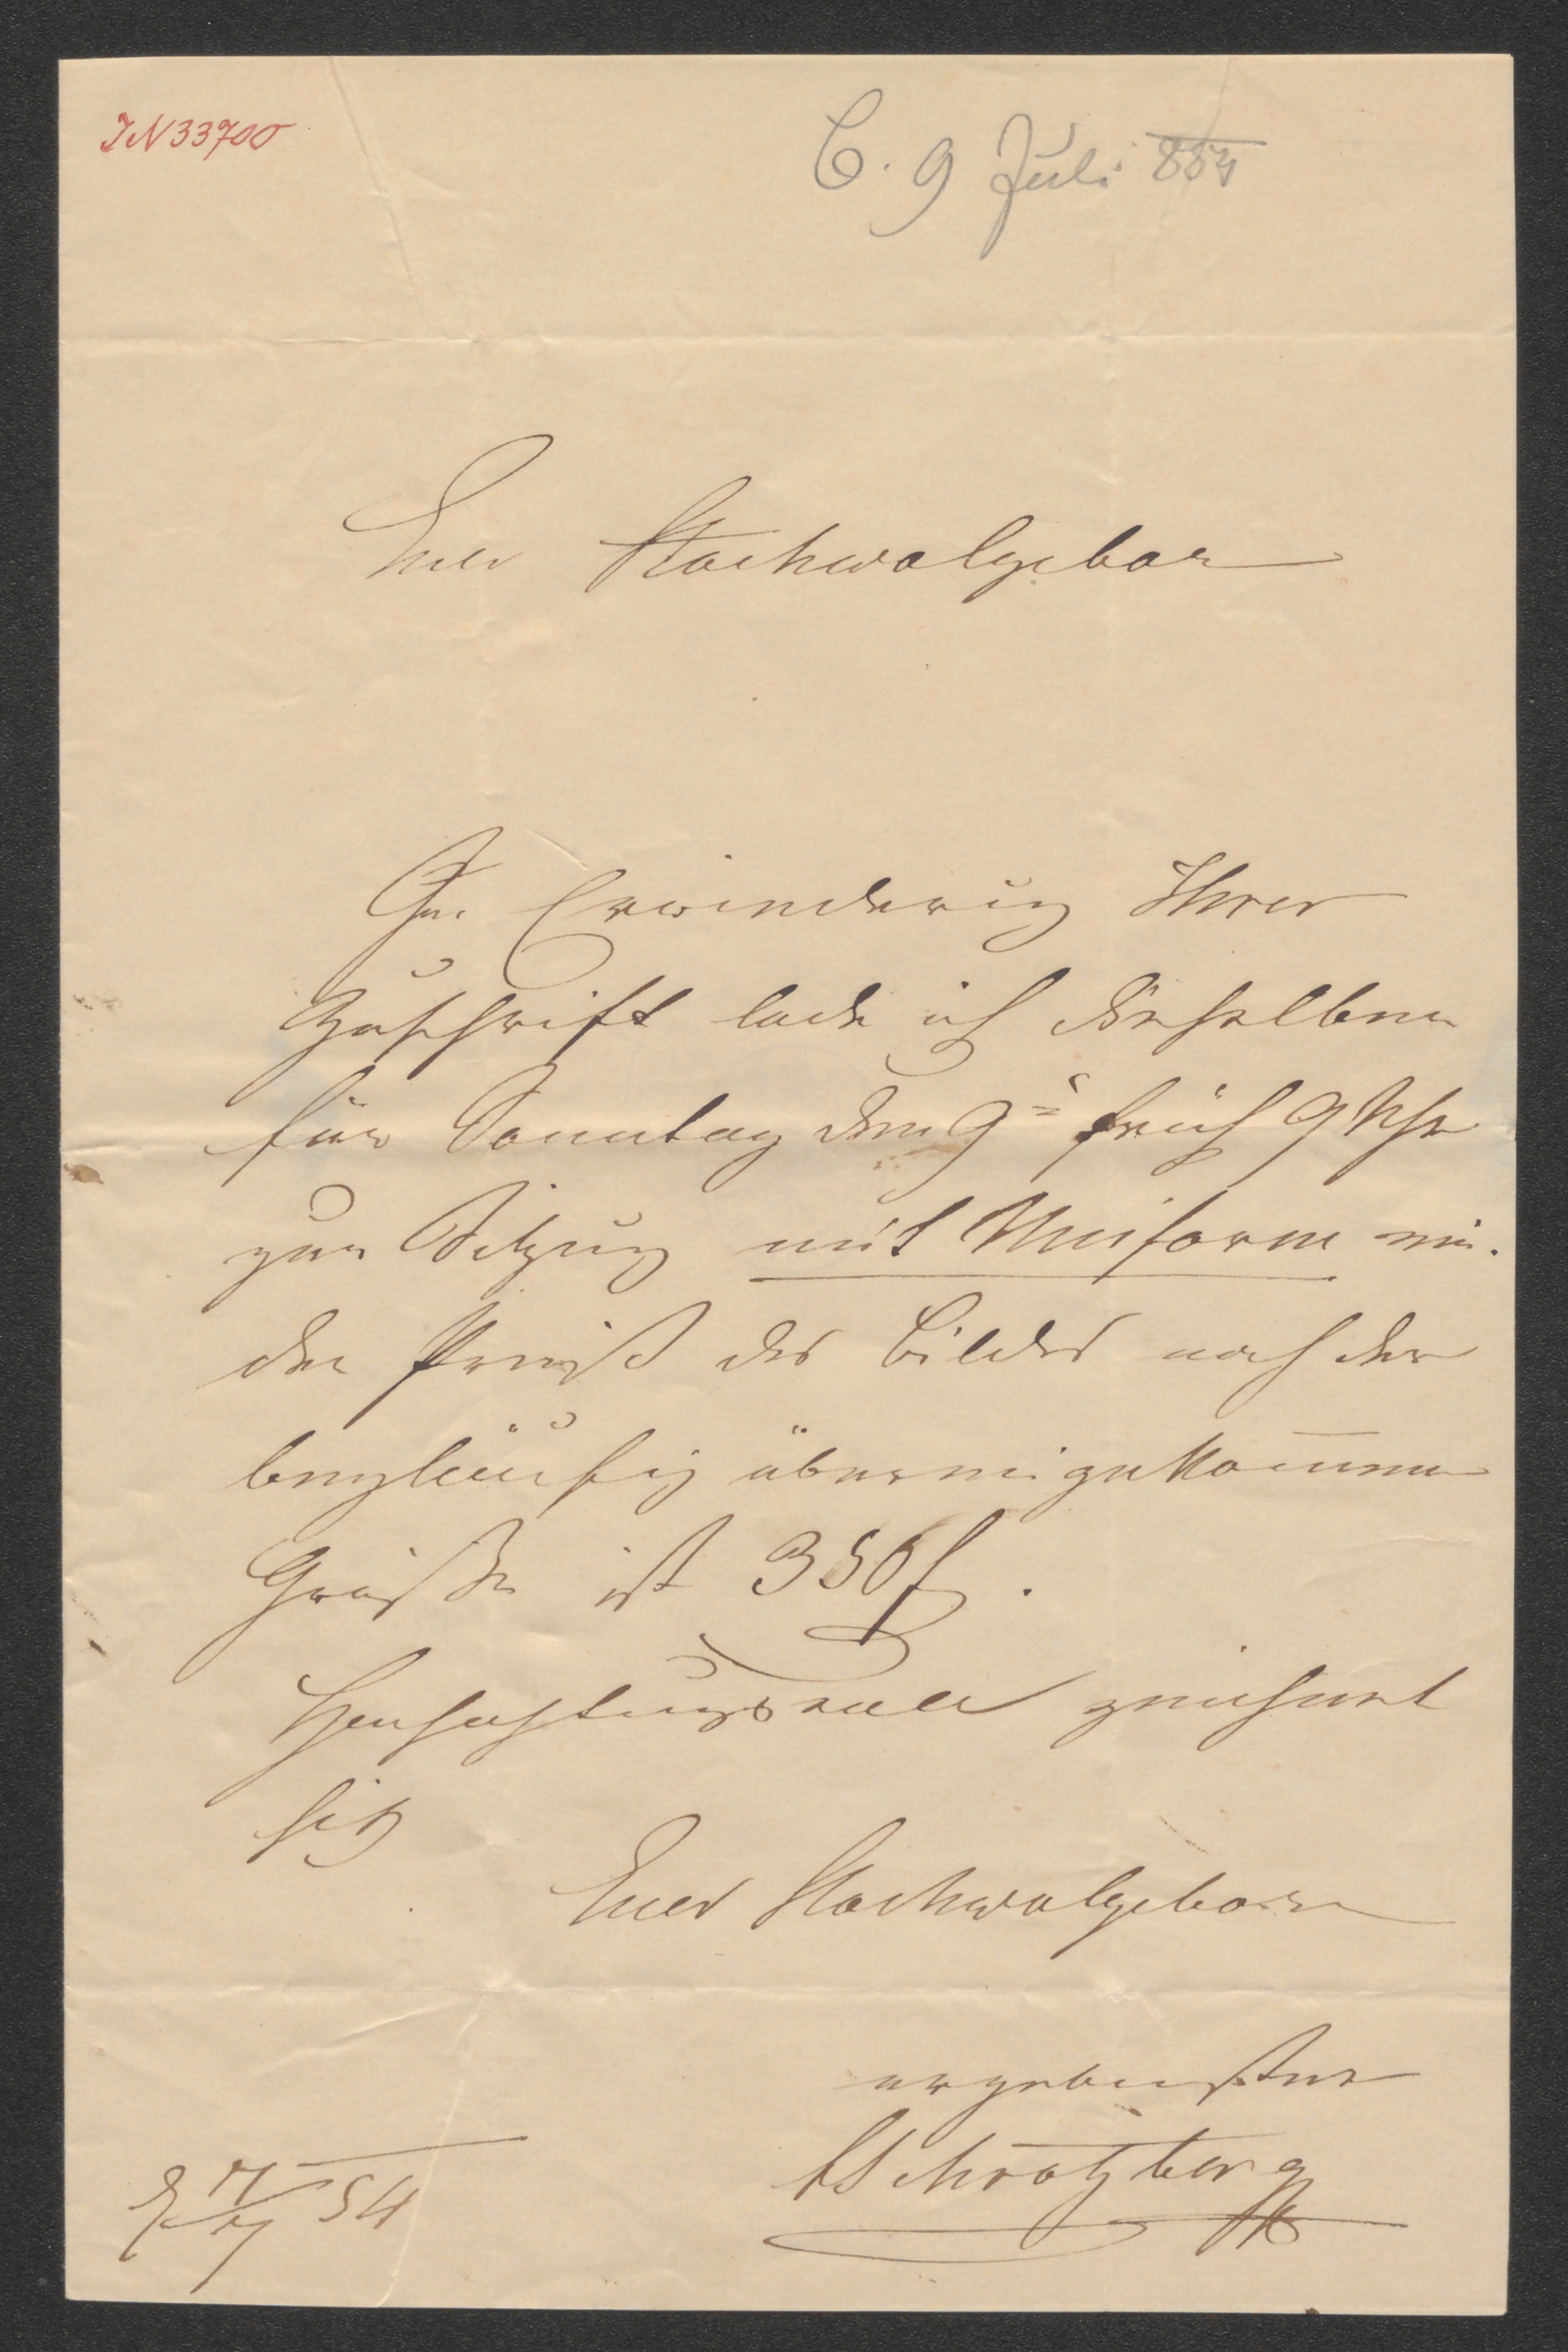 IN 33700
C. 9 Juli 854
Euer Hochwolgebor
In Erwinderung Ihrer
Zuschrift lade ich dieselben
für Sonntag den 9= früh 9 Uhr
zur Sitzung mit Uniform ein.
der Preiß des Bildes nach der
beyläufig übereingekommen
Größe ist 350 f.
Hochachtungsvoll zeichnet
sich
Euer Hochwolgeborn
ergebenster
Schrotzberg
7/7 54